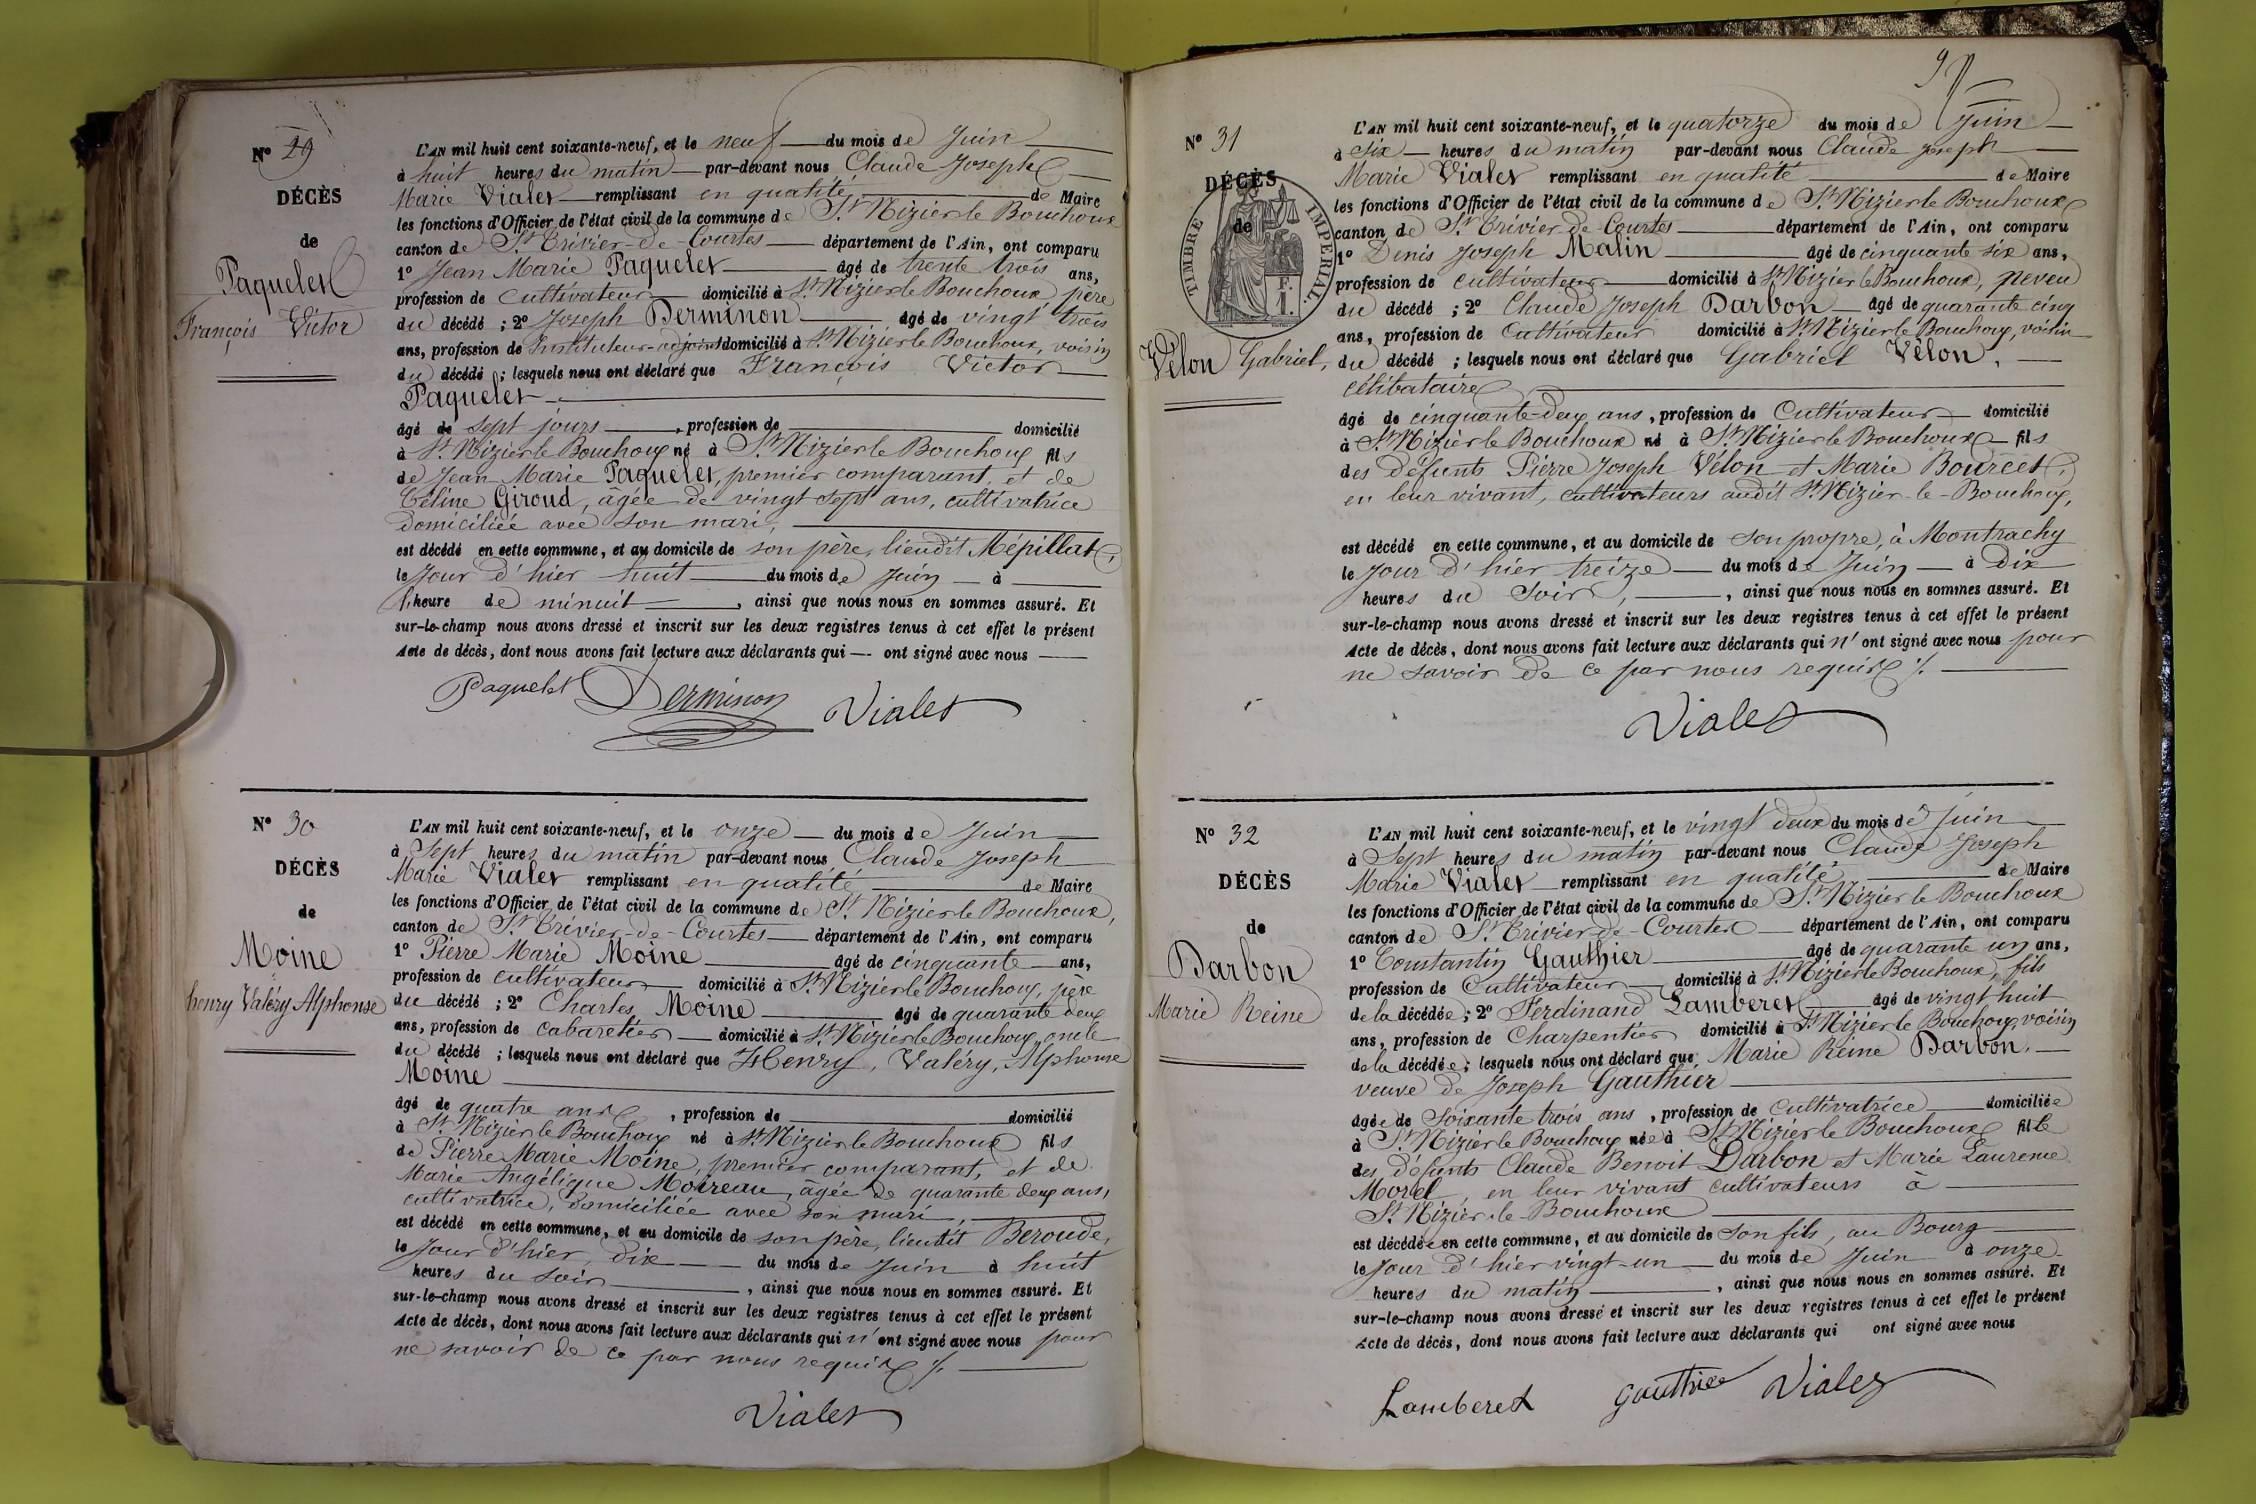 N° 29
DÉCÈS
de
Paquelet
François Victor
L'AN mil huit cent soixante-neuf, et le neuf du mois de Juin
à huit heures du matin par-devant nous Claude Joseph
Marie Vialet remplissant en qualité de Maire
les fonctions d'Officier de l'état civil de la commune de St Nizier le Bouchoux
canton de St Trivier-de-Courtes département de l'Ain, ont comparu
1° Jean Marie Paquelet âgé de trente trois ans,
profession de cultivateur domicilié à St Nizier le Bouchoux, père
du décédé ; 2° Joseph Derminon âgé de vingt trois
ans, profession de Instituteur-adjoint domicilié à St Nizier le Bouchoux, voisin
du décédé ; lesquels nous ont déclaré que François Victor
Paquelet
âgé de sept jours, profession de domicilié
à St Nizier le Bouchoux né à St Nizier le Bouchoux fils
de Jean Marie Paquelet, premier comparant, et de
Céline Giroud, âgée de vingt sept ans, cultivatrice
domiciliée avec son mari,
est décédé en cette commune, et au domicile de son père, lieudit Mépillat,
le Jour d'hier huit du mois de Juin à
l'heure de minuit, ainsi que nous nous en sommes assuré. Et
sur-le-champ nous avons dressé et inscrit sur les deux registres tenus à cet effet le présent
Acte de décès, dont nous avons fait lecture aux déclarants qui — ont signé avec nous
Paquelet Derminon Vialet
N° 30
DÉCÈS
de
Moine
henry Valéry Alphonse
L'AN mil huit cent soixante-neuf, et le onze du mois de Juin
à Sept heures du matin par-devant nous Claude Joseph
Marie Vialet remplissant en qualité de Maire
les fonctions d'Officier de l'état civil de la commune de St Nizier le Bouchoux,
canton de St Trivier-de-Courtes département de l'Ain, ont comparu
1° Pierre Marie Moine âgé de cinquante ans,
profession de cultivateur domicilié à St Nizier le Bouchoux, père
du décédé ; 2° Charles Moine âgé de quarante deux
ans, profession de cabaretier domicilié à St Nizier le Bouchoux, oncle
du décédé ; lesquels nous ont déclaré que Henry, Valéry, Alphonse
Moine
âgé de quatre ans, profession de domicilié
à St Nizier le Bouchoux né à St Nizier le Bouchoux fils
de Pierre Marie Moine, premier comparant, et de
Marie Angélique Moireau, âgée de quarante deux ans,
cultivatrice, domiciliée avec son mari,
est décédé en cette commune, et au domicile de son père, lieudit Beroude,
le Jour d'hier, dix du mois de Juin à huit
heures du soir, ainsi que nous nous en sommes assuré. Et
sur-le-champ nous avons dressé et inscrit sur les deux registres tenus à cet effet le présent
Acte de décès, dont nous avons fait lecture aux déclarants qui n'ont signé avec nous pour
ne savoir de ce par nous requis ./.
Vialet
N° 31
DÉCÈS
de
TIMBRE IMPÉRIAL
F. 1.
Vélon Gabriel,
L'AN mil huit cent soixante-neuf, et le quatorze du mois de Juin
à six heures du matin par-devant nous Claude Joseph
Marie Vialet remplissant en qualité de Maire
les fonctions d'Officier de l'état civil de la commune de St Nizier le Bouchoux
canton de St Trivier de Courtes département de l'Ain, ont comparu
1° Denis Joseph Malin âgé de cinquante six ans,
profession de cultivateur domicilié à St Nizier le Bouchoux, neveu
du décédé ; 2° Claude Joseph Darbon âgé de quarante cinq
ans, profession de Cultivateur domicilié à St Nizier le Bouchoux, voisin
du décédé ; lesquels nous ont déclaré que Gabriel Vélon,
célibataire
âgé de cinquante-deux ans, profession de Cultivateur domicilié
à St Nizier le Bouchoux né à St Nizier le Bouchoux fils
des défunts Pierre Joseph Vélon et Marie Bourcet,
en leur vivant, cultivateurs audit St Nizier-le-Bouchoux,
est décédé en cette commune, et au domicile de son propre, à Montrachy
le Jour d'hier treize du mois de Juin à Dix
heures du Soir, ainsi que nous nous en sommes assuré. Et
sur-le-champ nous avons dressé et inscrit sur les deux registres tenus à cet effet le présent
Acte de décès, dont nous avons fait lecture aux déclarants qui n'ont signé avec nous pour
ne savoir de ce par nous requis ./.
Vialet
N° 32
DÉCÈS
de
Darbon
Marie Reine
L'AN mil huit cent soixante-neuf, et le vingt deux du mois de Juin
à Sept heures du matin par-devant nous Claude Joseph
Marie Vialet remplissant en qualité de Maire
les fonctions d'Officier de l'état civil de la commune de St Nizier le Bouchoux
canton de St Trivier de Courtes département de l'Ain, ont comparu
1° Constantin Gauthier âgé de quarante un ans,
profession de Cultivateur domicilié à St Nizier le Bouchoux, fils
de la décédée ; 2° Ferdinand Lamberet âgé de vingt huit
ans, profession de Charpentier domicilié à St Nizier le Bouchoux, voisin
de la décédée ; lesquels nous ont déclaré que Marie Reine Darbon,
veuve de Joseph Gauthier
âgée de Soixante trois ans, profession de cultivatrice domiciliée
à St Nizier le Bouchoux née à St Nizier le Bouchoux fille
des défunts Claude Benoit Darbon et Marie Laurence
Morel, en leur vivant cultivateurs à
St Nizier-le-Bouchoux
est décédée en cette commune, et au domicile de son fils, au Bourg
le Jour d'hier vingt-un du mois de Juin à onze
heures du matin, ainsi que nous nous en sommes assuré. Et
sur-le-champ nous avons dressé et inscrit sur les deux registres tenus à cet effet le présent
Acte de décès, dont nous avons fait lecture aux déclarants qui ont signé avec nous
Lamberet Gauthier Vialet